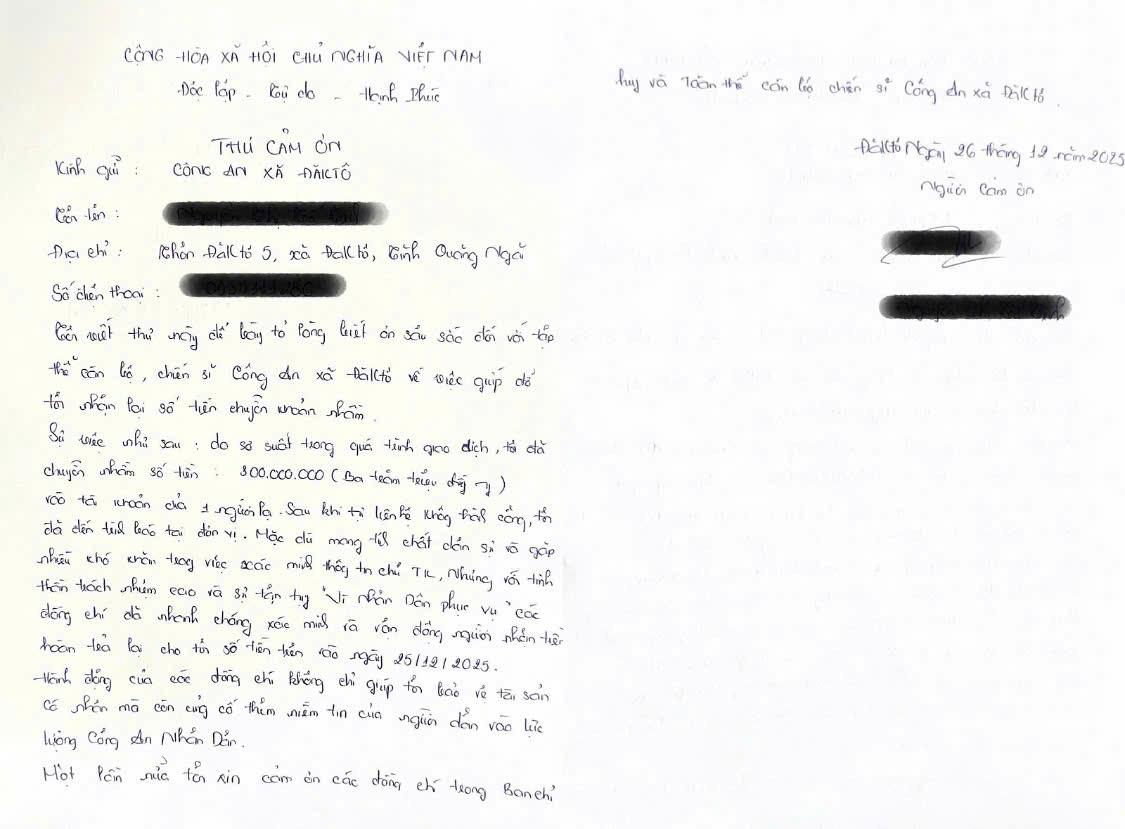 CỘNG HÒA XÃ HỘI CHỦ NGHĨA VIỆT NAM
Độc lập - Tự do - Hạnh Phúc
THƯ CẢM ƠN
Kính gửi : CÔNG AN XÃ ĐĂKTÔ
Tôi tên :
Địa chỉ : Thôn ĐăkTô 5, xã ĐakTô, Tỉnh Quảng Ngãi
Số điện thoại :
Tôi viết thư này để bày tỏ lòng biết ơn sâu sắc đối với tập
thể cán bộ, chiến sĩ Công An xã ĐăkTô về việc giúp đỡ
tôi nhận lại số tiền chuyển khoản nhầm.
Sự việc như sau : do sơ suất trong quá trình giao dịch, tôi đã
chuyển nhầm số tiền : 300.000.000 (Ba trăm triệu đồng)
vào tài khoản của 1 người lạ. Sau khi tự liên hệ không thành công, tôi
đã đến trình báo tại đơn vị. Mặc dù mang tính chất dân sự và gặp
nhiều khó khăn trong việc xác minh thông tin chủ TK, Nhưng với tinh
thần trách nhiệm cao và sự tận tụy "Vì Nhân Dân phục vụ" các
đồng chí đã nhanh chóng xác minh và vận động người nhận tiền
hoàn trả lại cho tôi số tiền trên vào ngày 25/12/2025.
Hành động của các đồng chí không chỉ giúp tôi bảo vệ tài sản
cá nhân mà còn củng cố thêm niềm tin của người dân vào lực
lượng Công An Nhân Dân.
Một lần nữa tôi xin cảm ơn các đồng chí trong Ban chỉ
huy và Toàn thể cán bộ chiến sĩ Công An xã ĐăkTô.
ĐăkTô Ngày 26 tháng 12 năm 2025
Người cảm ơn